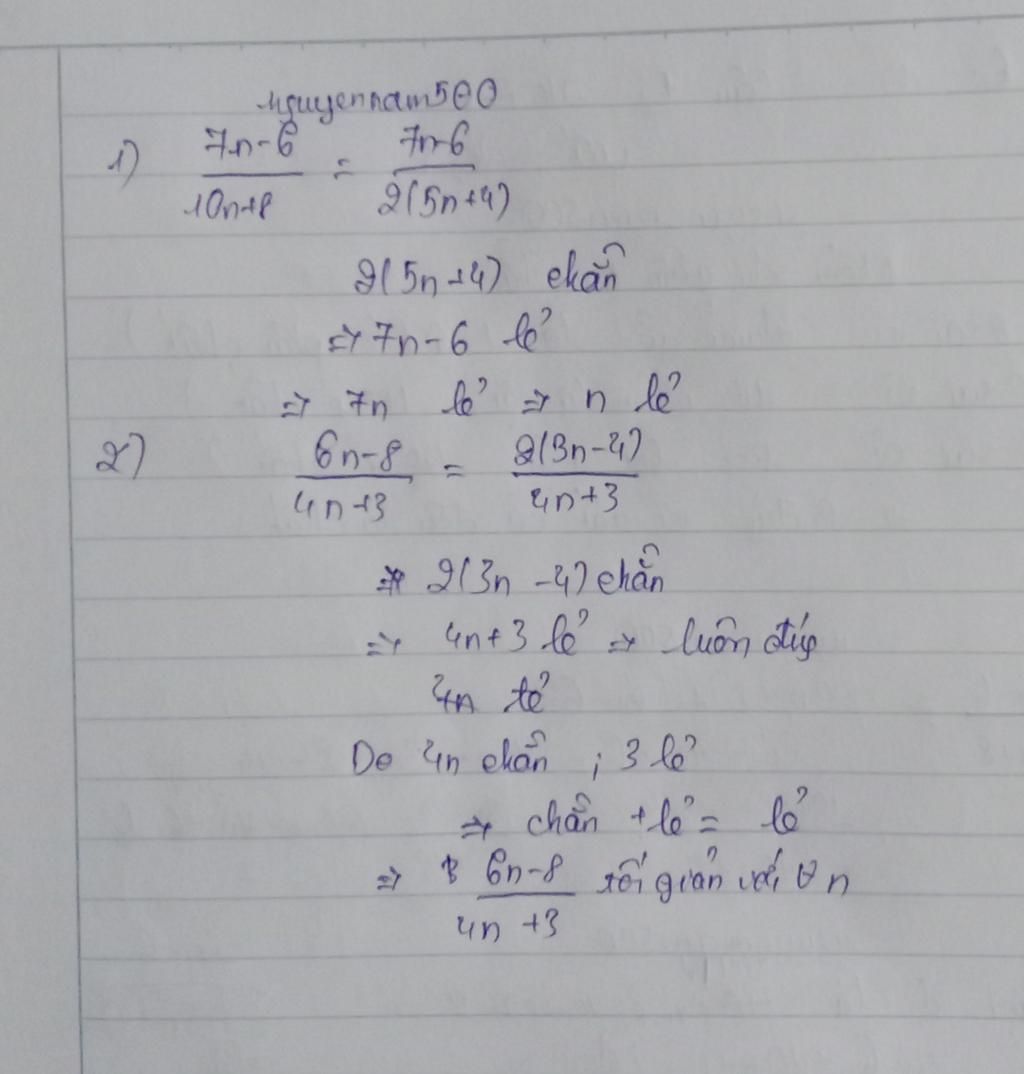 nguyennam500
1) 7n-6/10n+8 = 7n-6/2(5n+4)
2(5n+4) chẵn
=> 7n-6 lẻ
=> 7n lẻ => n lẻ
2) 6n-8/4n+3 = 2(3n-4)/4n+3
=> 2(3n-4) chẵn
=> 4n+3 lẻ => luôn đúg
4n lẻ
Do 4n chẵn ; 3 lẻ
=> chẵn + lẻ = lẻ
=> 6n-8/4n+3 tối giản với ∀ n